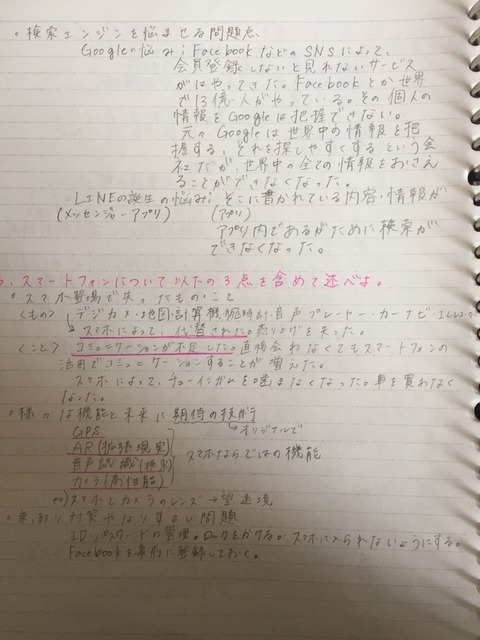 。検索エンジンを悩ませる問題点、
Googleの悩み；FacebookなどのSNSによって、
会員登録しないと見れないサービス
がはやってきた。Facebookとか世界
で13億人がやっている。その個人の
情報をGoogleは把握できない。
元々Googleは世界中の情報を把
握する、それを探しやすくするという会
社だが、世界中の全ての情報をおさえ
ることができなくなった。
LINEの誕生の悩み；そこに書かれている内容・情報が
(メッセンジャーアプリ) (アプリ)
アプリ内であるがために検索が
できなくなった。
スマートフォンについて以下の3点を含めて述べよ。
スマホ登場で失ったもの・こと
〈もの〉 デジカメ・地図・計算機・腕時計・音声プレーヤー・カーナビ・
スマホによって、代替された。売り上げを失った。
〈こと〉 コミュニケーションが不足した。直接会わなくてもスマートフォンの
活用でコミュニケーションすることが増えた。
スマホによって、チューインガムを噛まなくなった。車を買わなく
なった。
様々な機能と未来に期待の技術
GPS オリジナルで
AR(拡張現実)
音声認識(検索) スマホならではの機能
カメラ(高性能)
ex)スマホとカメラのレンズ→望遠鏡
。乗っ取り対策やなりすまし問題
ID・パスワードの管理。ロックをかける。スマホに入られないようにする。
Facebookを事前に登録しておく。